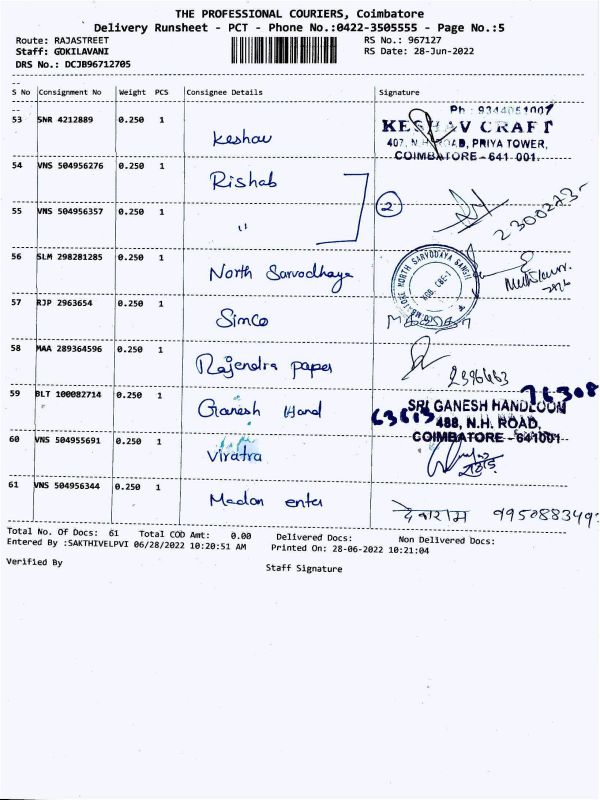 THE PROFESSIONAL COURIERS, Coimbatore
Delivery Runsheet - PCT - Phone No.:0422-3505555 - Page No.:5
Route: RAJASTREET RS No.: 967127
Staff: GOKILAVANI RS Date: 28-Jun-2022
DRS No.: DCJB96712705
S No Consignment No Weight PCS Consignee Details Signature
53 SNR 4212889 0.250 1 Keshav
Ph : 9344051007
KESHAV CRAFT
407, N.H. ROAD, PRIYA TOWER,
COIMBATORE - 641 001.
54 VNS 504956276 0.250 1 Rishab
2
55 VNS 504956357 0.250 1 "
56 SLM 298281285 0.250 1 North Sarvodhaya
57 RJP 2963654 0.250 1 Simco
58 MAA 289364596 0.250 1 Rajendra paper
2396463
59 BLT 100082714 0.250 1 Ganesh Hand
76308
63613
SRI GANESH HANDLOOM
488, N.H. ROAD,
COIMBATORE - 641001
60 VNS 504955691 0.250 1 Viratra
61 VNS 504956344 0.250 1 Madan enter
देवाराम
Total No. Of Docs: 61 Total COD Amt: 0.00 Delivered Docs: Non Delivered Docs:
Entered By :SAKTHIVELPVI 06/28/2022 10:20:51 AM Printed On: 28-06-2022 10:21:04
Verified By Staff Signature